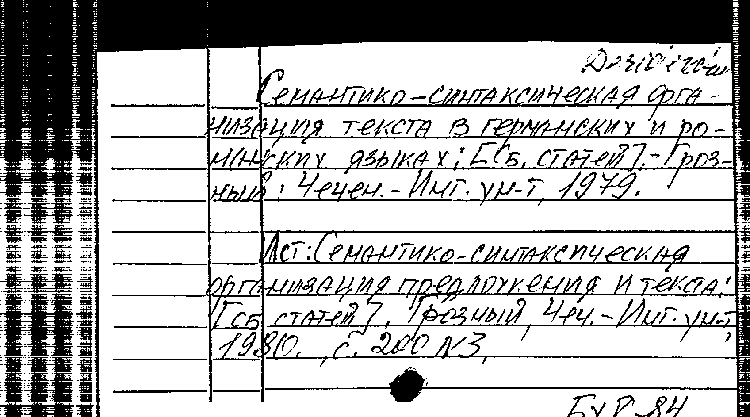 Desiderata
Семантико-синтаксическая орга-
низация текста в германских и ро-
манских языках: [Сб. статей].- Гроз-
ный: Чечен.-Инг. ун-т, 1979.
Ист: Семантико-синтаксическая
организация предложения и текста:
[Сб. статей], Грозный, Чеч.-Инг. ун-т,
1980. , с. 200 N3,
БуР-84